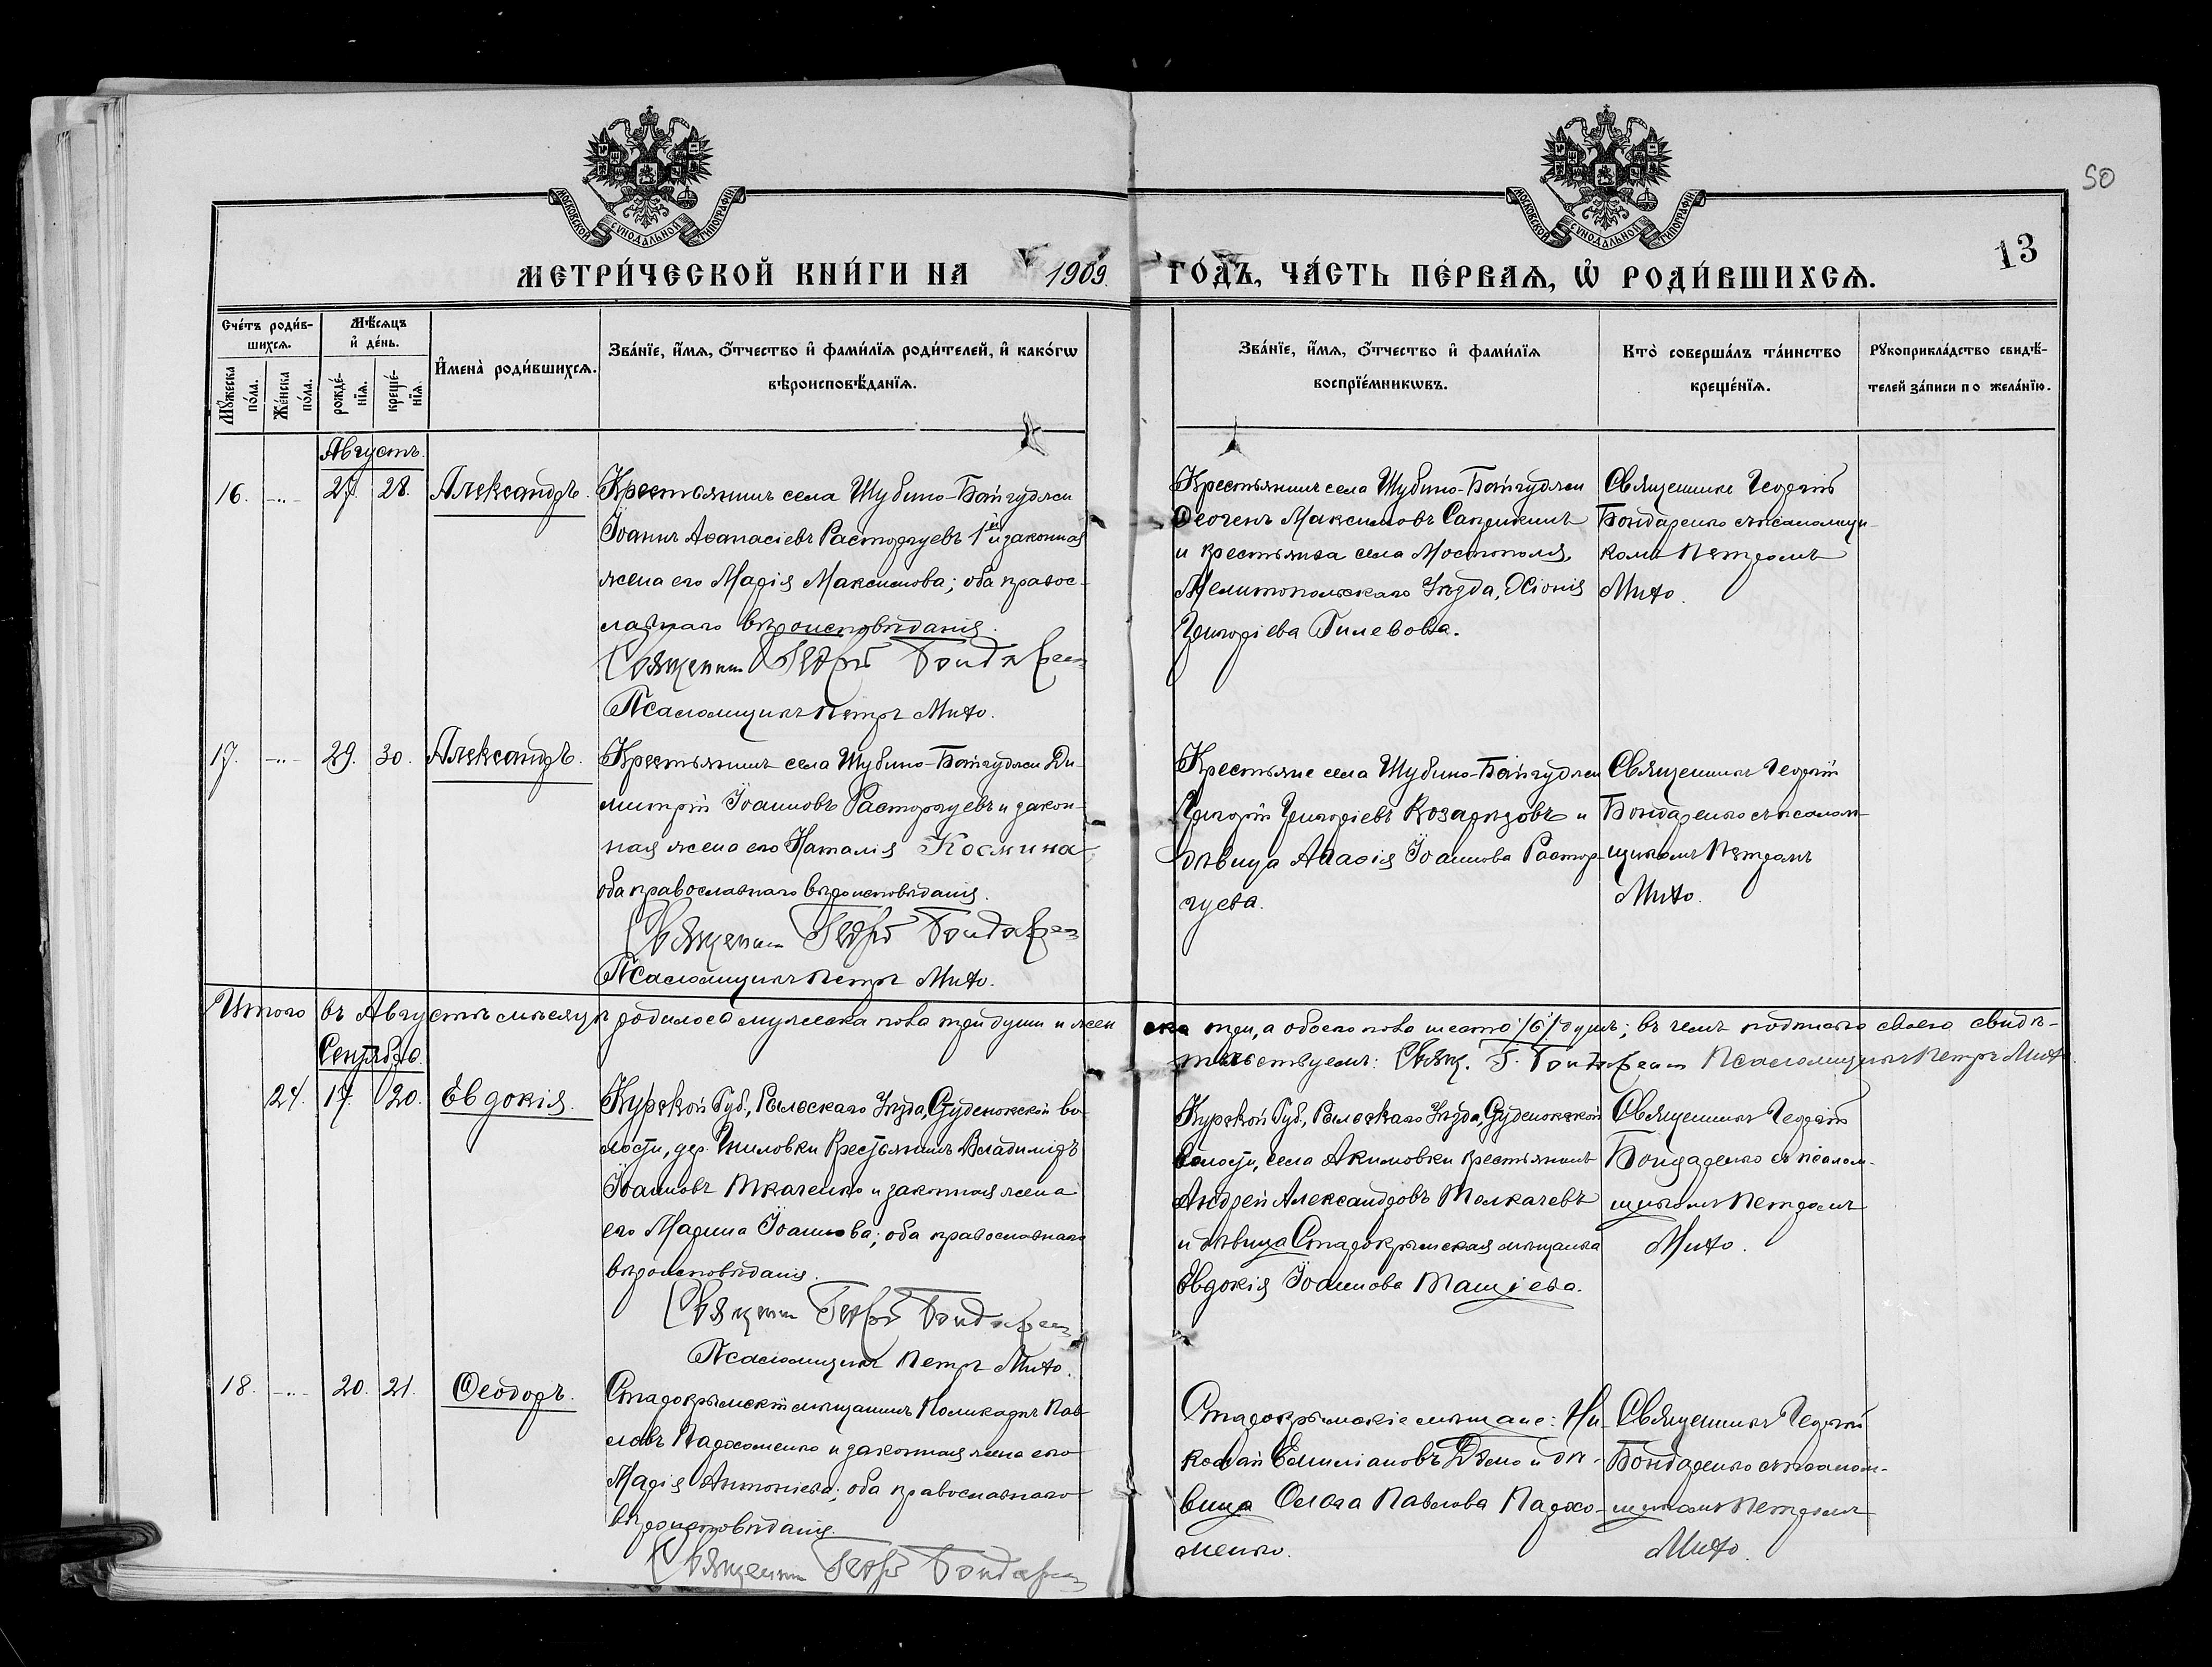 50
13
МОСКОВСКОЙ СѴНОДАЛЬНОЙ ТИПОГРАФІИ
МОСКОВСКОЙ СѴНОДАЛЬНОЙ ТИПОГРАФІИ
МЕТРИ́ЧЕСКОЙ КНИ́ГИ НА 1909. ГО́ДЪ, ЧА́СТЬ ПЕ́РВАѦ, Ѡ҆ РОДИ́ВШИХСѦ.
Сче́тъ роди́в-
шихсѧ.
Мꙋ́жеска по́ла.
Же́нска по́ла.
Мѣ́сѧцъ
и҆ де́нь.
рожде́-
нїѧ.
креще́-
нїѧ.
И҆мена̀ роди́вшихсѧ.
Зва́нїе, и҆́мѧ, ѻ҆́тчество и҆ фами́лїѧ роди́телей, и҆ како́гѡ
вѣроисповѣ́данїѧ.
Зва́нїе, и҆́мѧ, ѻ҆́тчество и҆ фами́лїѧ
воспрїе́мникѡвъ.
Кто̀ соверша́лъ та́инство
креще́нїѧ.
Рꙋкоприкла́дство свидѣ́-
телей за́писи по жела́нїю.
Августъ.
16. -..- 27. 28. Александръ.
Крестьянинъ села Шубино-Байгуджи
Іоаннъ Аѳанасіевъ Расторгуевъ 1й и законная
жена его Марія Максимова; оба правос-
лавнаго вѣроисповѣданія.
Священник Георгій Бондаренко
Псаломщикъ Петръ Мито.
Крестьянинъ села Шубино-Байгуджи
Максимовъ
и крестьянка села
Мелитопольскаго Уѣзда, Ѳіонія
Григоріева
Священникъ Георгій
Бондаренко съ псаломщи-
комъ Петромъ
Мито.
17. -..- 29. 30. Александръ.
Крестьянинъ села Шубино-Байгуджи Ди-
митрій Іоанновъ Расторгуевъ и закон-
ная жена его Наталія Космина
оба православнаго вѣроисповѣданія.
Священник Георгій Бондаренко
Псаломщикъ Петръ Мито.
Крестьяне села Шубино-Байгуджи
Григорій Григоріевъ Козарезовъ и
дѣвица Іоаннова Растор-
гуева.
Священникъ Георгій
Бондаренко съ псалом-
щикомъ Петромъ
Мито.
Итого въ Августѣ мѣсяцѣ родилось мужеска пола три души и жен
ска три, а обоего пола шесть /6/ душъ; въ чемъ подписью своею свидѣ-
тельствуемъ: Свящ. Г. Бондаренко Псаломщикъ Петръ Мито.
Сентябрь.
24. 17. 20. Евдокія.
Курской Губ., Рыльскаго Уѣзда, Студенокской во-
лости, дер. крестьянинъ Владиміръ
Іоанновъ Ткаченко и законная жена
его Марина Іоаннова; оба православнаго
вѣроисповѣданія.
Священник Георгій Бондаренко
Псаломщикъ Петръ Мито.
Курской Губ., Рыльскаго Уѣзда, Студенокской
волости, села Акимовки крестьянинъ
Андрей Александровъ Толкачевъ
и дѣвица Старокрымская мѣщанка
Евдокія Іоаннова
Священникъ Георгій
Бондаренко съ псалом-
щикомъ Петромъ
Мито.
18. -..- 20. 21. Ѳеодоръ.
Старокрымскій мѣщанинъ Поликарпъ Пав-
ловъ Пархоменко и законная жена его
Марія Антоніева; оба православнаго
вѣроисповѣданія.
Священник Георгій Бондаренко
Старокрымскіе мѣщане: Ни-
колай Емиліановъ и дѣ-
вица Ольга Павлова Пархо-
менко.
Священникъ Георгій
Бондаренко съ псалом-
щикомъ Петромъ
Мито.